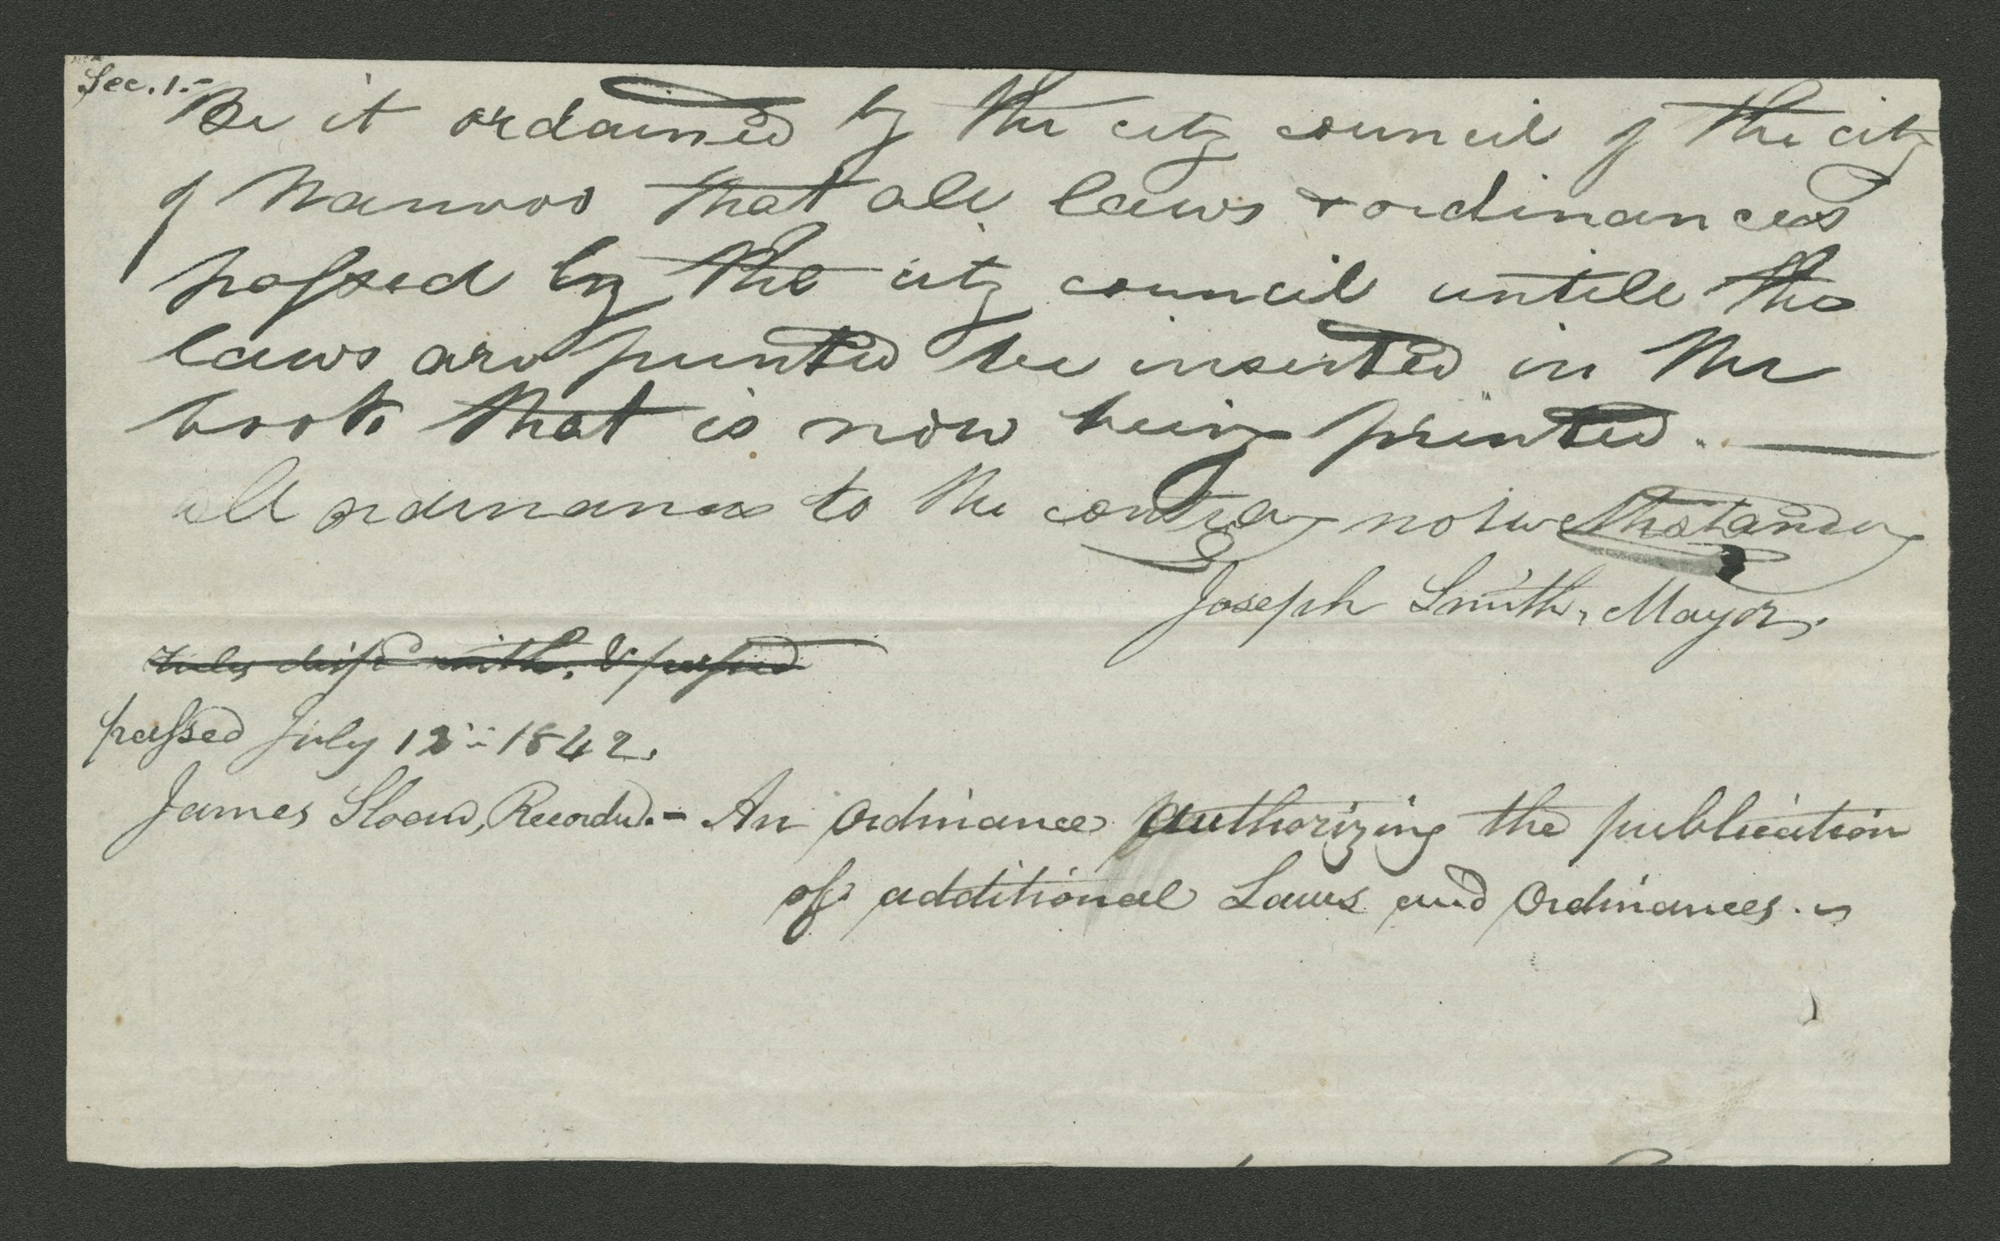 Sec. 1.- Be it ordained by the city council of the city
of Nauvoo that all laws & ordinances
passed by the city council untill the
laws are printed be inserted in the
book that is now being printed. —
all ordinances to the contray notwethstanding
Joseph Smith, Mayor.
rules disp.d with, & passed
passed July 12.. 1842.
James Sloan, Recorder.- An Ordinance authorizing the publication
of additional Laws and Ordinances. ~